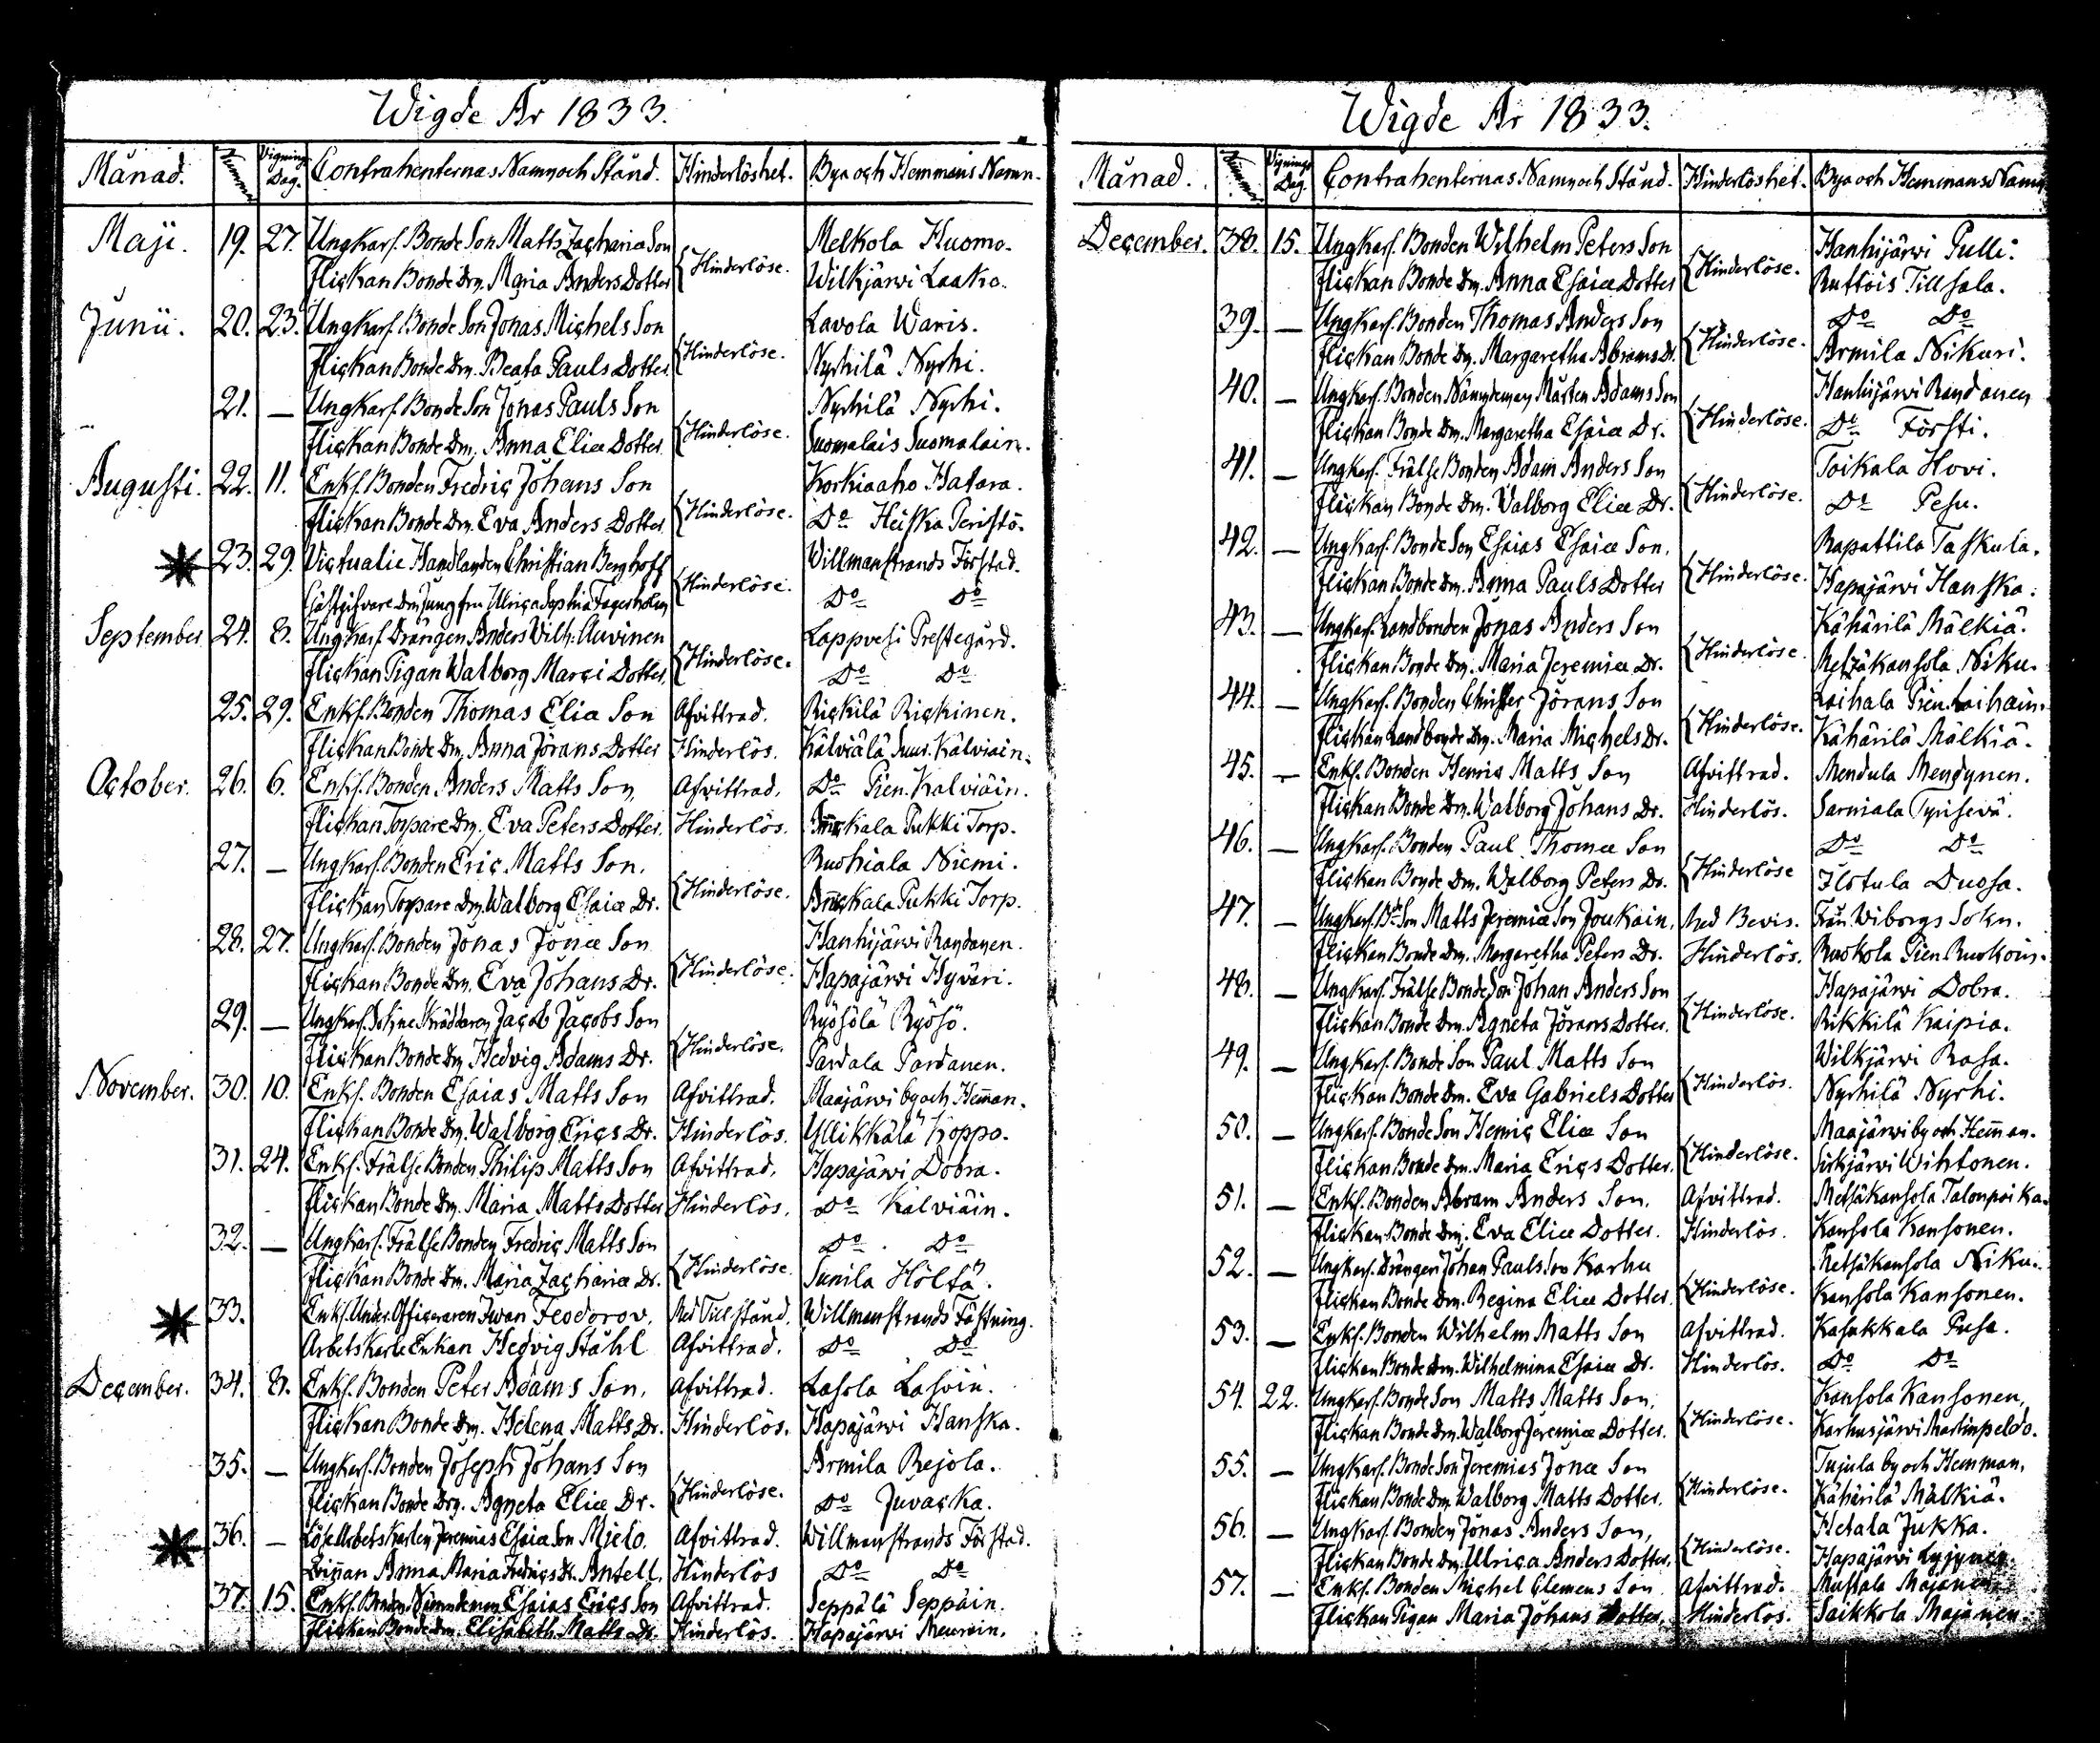 Wigde År 1833.
Månad. Nummer Vignings Dag. Contrahenternas Namn och Stånd. Hinderlöshet. Bya och Hemmans Namn.
Maji. 19. 27. Ungkarl. Bonde Son Matts Zacharia Son Melkola Huomo.
Flickan Bonde Dm. Maria Anders Dotter {Hinderlöse. Wilkjärwi Laako.
Junii. 20. 23. Ungkarl. Bonde Son Jonas Michels Son Lavola Waris.
Flickan Bonde Dm. Beata Pauls Dotter {Hinderlöse. Nyrhilä Nyrhi.
21. — Ungkarl. Bonde Son Jonas Pauls Son Nyrhilä Nyrhi.
Flickan Bonde Dm. Anna Eliæ Dotter {Hinderlöse. Suomalais Suomalain.
Augusti. 22. 11. Enkl. Bonden Fredric Johans Son Korkiaaho Hatara.
Flickan Bonde Dm. Eva Anders Dotter {Hinderlöse. Do Heiska Peristö.
23. 29. Victualie Handlanden Christian Berghoff Willmanstrands Förstad.
Gästgifvare Dm Jungfru Ulrica Sophia Fagerholm {Hinderlöse. Do Do
September 24. 8. Ungkarl Drängen Anders Vilh. Auvinen Lappvesi Prestegård.
Flickan Pigan Walborg Marci Dotter, {Hinderlöse. Do Do
25. 29. Enkl. Bonden Thomas Eliæ Son Afvittrad. Rickilä Rickinen.
Flickan Bonde Dm. Anna Jörans Dotter Hinderlös. Kälviälä Suur. Kälviäin.
October. 26. 6. Enkl. Bonden Anders Matts Son, Afvittrad. Do Pien. Kalviäin.
Flickan Torpare Dm. Eva Peters Dotter. Hinderlös. Pukki Torp.
27. — Ungkarl. Bonden Eric Matts Son. Ruohiala Niemi.
Flickan Torpare Dm. Walborg Esaiæ Dr. {Hinderlöse. Pukki Torp.
28. 27. Ungkarl. Bonden Jonas Jonæ Son Hanhijärwi Randanen.
Flickan Bonde Dm. Eva Johans Dr. {Hinderlöse. Hapajärwi Hyväri.
29. — Ungkarl. Sokne Skräddaren Jacob Jacobs Son Ryösölä Ryösö.
Flickan Bonde Dm Hedvig Adams Dr. {Hinderlöse. Pardala Pardanen.
November. 30. 10. Enkl. Bonden Esaias Matts Son Afvittrad. Maajärwi by och Heman.
Flickan Bonde Dm. Walborg Erics Dr. Hinderlös. Yllikkälä Koppo.
31. 24. Enkl. Frälse Bonden Philip Matts Son Afvittrad. Hapajärwi Dobra.
Flickan Bonde Dm. Maria Matts Dotter Hinderlös. Do Kalviäin.
32. — Ungkarl. Frälse Bonden Fredric Matts Son Do Do
Flickan Bonde Dm. Maria Zachariæ Dr. {Hinderlöse. Sunila Hölttä.
33. Enkl. Under Officeraren Iwan Feodorov. Med Tillstånd. Willmanstrands Fästning.
Arbets Karls Enkan Hedvig Ståhl Afvittrad. Do Do
December. 34. 8. Enkl. Bonden Peter Adams Son, Afvittrad. Lasola Lasoin.
Flickan Bonde Dm. Helena Matts Dr. Hinderlös. Hapajärwi Hanska.
35. — Ungkarl. Bonden Joseph Johans Son Armila Rejola.
Flickan Bonde Dm. Agneta Eliæ Dr. {Hinderlöse. Do Juvacka.
36. — Löse Arbets Karlen Jeremias Esaiæ Son Mielo. Afvittrad. Willmanstrands Förstad.
Qvinnan Anna Maria Fredrics Dr. Antell. Hinderlös Do Do
37. 15. Enkl. Bonden Nämndeman Esaias Erics Son Afvittrad. Seppälä Seppäin.
Flickan Bonde Dm. Elisabeth Matts Dr. Hinderlös. Hapajärwi Meurain.
Wigde År 1833.
Månad. Nummer Vignings Dag. Contrahenternas Namn och Stånd. Hinderlöshet. Bya och Hemmans Namn
December. 38. 15. Ungkarl. Bonden Wilhelm Peters Son Hanhijärwi Pulli.
Flickan Bonde Dm. Anna Esaiæ Dotter {Hinderlöse. Ruttois Tillsala.
39. — Ungkarl. Bonden Thomas Anders Son Do Do
Flickan Bonde Dm. Margaretha Abrams Dr. {Hinderlöse. Armila Nikuri.
40. — Ungkarl. Bonden Nämndeman Mårten Adams Son Hanhijärwi Randanen
Flickan Bonde Dm. Margaretha Esaiæ Dr. {Hinderlöse. Do Försti.
41. — Ungkarl. Frälse Bonden Adam Anders Son Toikala Hovi.
Flickan Bonde Dm. Valborg Eliæ Dr. {Hinderlöse. Do Pesu.
42. — Ungkarl. Bonde Son Esaias Esaiæ Son. Rapattila Taskula.
Flickan Bonde Dm. Anna Pauls Dotter {Hinderlöse. Hapajärwi Hanska.
43. — Ungkarl. Landbonden Jonas Anders Son Kähärilä Mälkiä.
Flickan Bonde Dm. Maria Jeremiæ Dr. {Hinderlöse. Metzäkansola Niku.
44. — Ungkarl. Bonden Christer Jörans Son Laihala Pien. Laihain.
Flickan Landbonde Dm. Maria Michels Dr. {Hinderlöse. Kähärilä Mälkiä.
45. — Enkl. Bonden Henric Matts Son Afvittrad. Mendula Mendynen.
Flickan Bonde Dm. Walborg Johans Dr. Hinderlös. Sarviala Tyrisevä.
46. — Ungkarl. Bonden Paul Thomæ Son Do Do
Flickan Bonde Dm. Walborg Peters Dr. {Hinderlöse Ilotula Duosa.
47. — Ungkarl. Bde Son Matts Jeremiæ Son Joukain. Med Bevis. Från Wiborgs Sokn.
Flickan Bonde Dm. Margaretha Peters Dr. Hinderlös. Ruokola Pien Ruokoin.
48. — Ungkarl. Frälse Bonde Son Johan Anders Son Hapajärwi Dobra.
Flickan Bonde Dm. Agneta Jörans Dotter. {Hinderlöse. Rikkilä Kaipia.
49. — Ungkarl. Bonde Son Paul Matts Son Wilkjärwi Rasa.
Flickan Bonde Dm. Eva Gabriels Dotter {Hinderlös. Nyrhilä Nyrhi.
50. — Ungkarl. Bonde Son Henric Eliæ Son Maajärwi by och Heman.
Flickan Bonde Dm. Maria Erics Dotter. {Hinderlöse. Sirkjärwi Wihtonen.
51. — Enkl. Bonden Abram Anders Son. Afvittrad. Metsäkansola Talonpoika.
Flickan Bonde Dm. Eva Eliæ Dotter. Hinderlös. Kansola Kansonen.
52. — Ungkarl. Drängen Johan Pauls Son Karhu Metsäkansola Niku.
Flickan Bonde Dm. Regina Eliæ Dotter. {Hinderlöse. Kansola Kansonen.
53. — Enkl. Bonden Wilhelm Matts Son Afvittrad. Kasukkala Pusa.
Flickan Bonde Dm. Wilhelmina Esaiæ Dr. Hinderlös. Do Do
54. 22. Ungkarl. Bonde Son Matts Matts Son. Kansola Kansonen,
Flickan Bonde Dm. Walborg Jeremiæ Dotter. {Hinderlöse. Karhusjärwi Martinpeldo.
55. — Ungkarl. Bonde Son Jeremias Jonæ Son Tujula by och Hemman.
Flickan Bonde Dm. Walborg Matts Dotter. {Hinderlöse. Kähärilä Mälkiä.
56. — Ungkarl. Bonden Jonas Anders Son, Hetala Jukka.
Flickan Bonde Dm. Ulrica Anders Dotter. {Hinderlöse. Hapajärwi
57. — Enkl. Bonden Michel Clemens Son Afvittrad. Mustala Majanen.
Flickan Pigan Maria Johans Dotter. Hinderlös. Saikkola Majanen.